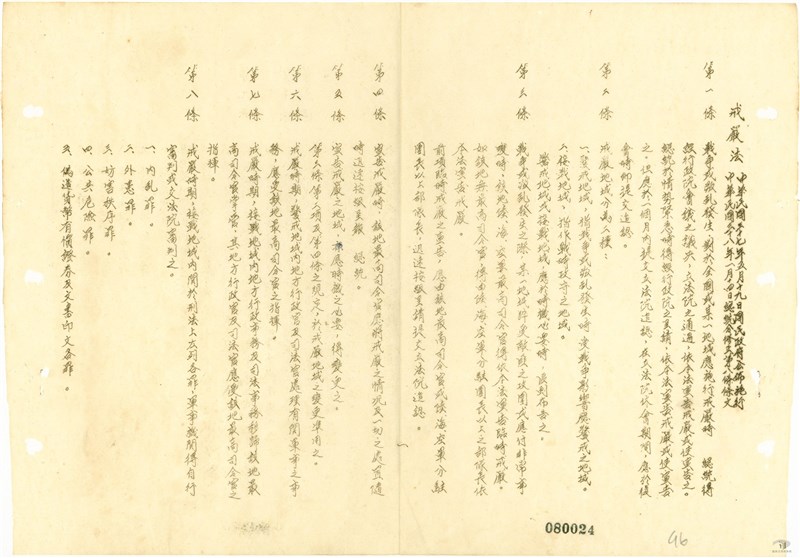 戒嚴法
中華民國三十七年五月十九日國民政府公佈施行
中華民國三十八年一月十四日總統令修正第八條條文
第一條
戰爭或叛亂發生，對於全國或某一地域應施行戒嚴時 總統得
經行政院會議之議決，立法院之通過，依本法宣告戒嚴或使宣告之。
總統於情勢緊急時得經行政院之呈請，依本法宣告戒嚴或使宣告
之，但應於一個月內提交立法院追認，在立法院休會期間，應於復
會時即提交追認。
第二條
戒嚴地域分為二種：
一、警戒地域，指戰爭或叛亂發生時受戰爭影響應警戒之地域。
二、接戰地域，指作戰時攻守之地域。
警戒地域或接戰地域，應於時機必要時，區劃布告之。
第三條
戰爭或叛亂發生之際，某一地域猝受敵匪之攻圍或應付非常事
變時，該地陸、海、空軍最高司令官得依本法宣告臨時戒嚴。
如該地無最高司令官，得由陸、海、空軍分駐團長以上之部隊長依
本法宣告戒嚴。
前項臨時戒嚴之宣告，應由該地最高司令官或陸、海、空軍分駐
團長以上部隊長，迅速按級呈請提交立法院追認。
第四條
宣告戒嚴時，該地最高司令官應將戒嚴之情況及一切之處置隨
時迅速按級呈報 總統。
第五條
宣告戒嚴之地域，應時機之必要，得變更之。
第三條第二項及第四條之規定，於戒嚴地域之變更準用之。
第六條
戒嚴時期，警戒地域內地方行政官及司法官處理有關軍事之事
務，應受該地最高司令官之指揮。
第七條
戒嚴時期，接戰地域內地方行政事務及司法事務移歸該地最
高司令官掌管，其地方行政官及司法官應受該地最高司令官之
指揮。
第八條
戒嚴時期，接戰地域內關於刑法上左列各罪，軍事機關得自行
審判或交法院審判之。
一、內亂罪。
二、外患罪。
三、妨害秩序罪。
四、公共危險罪。
五、偽造貨幣有價證券及文書印文各罪。
080024
96